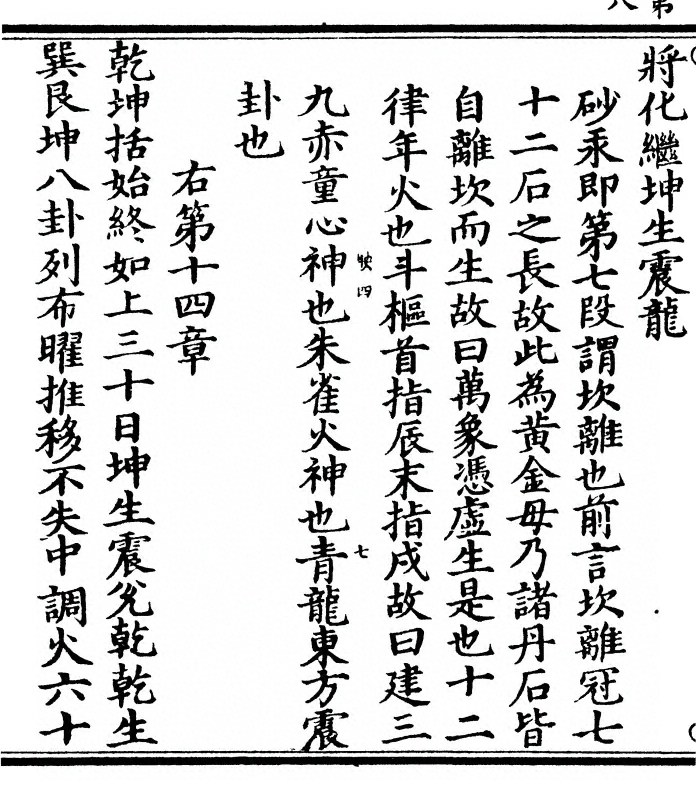 將化繼坤生震龍
砂汞即第七段謂坎離也前言坎離冠七
十二石之長故此為黃金母乃諸丹石皆
自離坎而生故曰萬象憑虛生是也十二
律年火也斗樞首指辰末指戌故曰建三
九赤童心神也朱雀火神也青龍東方震
卦也
右第十四章
乾坤括始終如上三十日坤生震兌乾乾生
巽艮坤八卦列布曜推移不失中調火六十